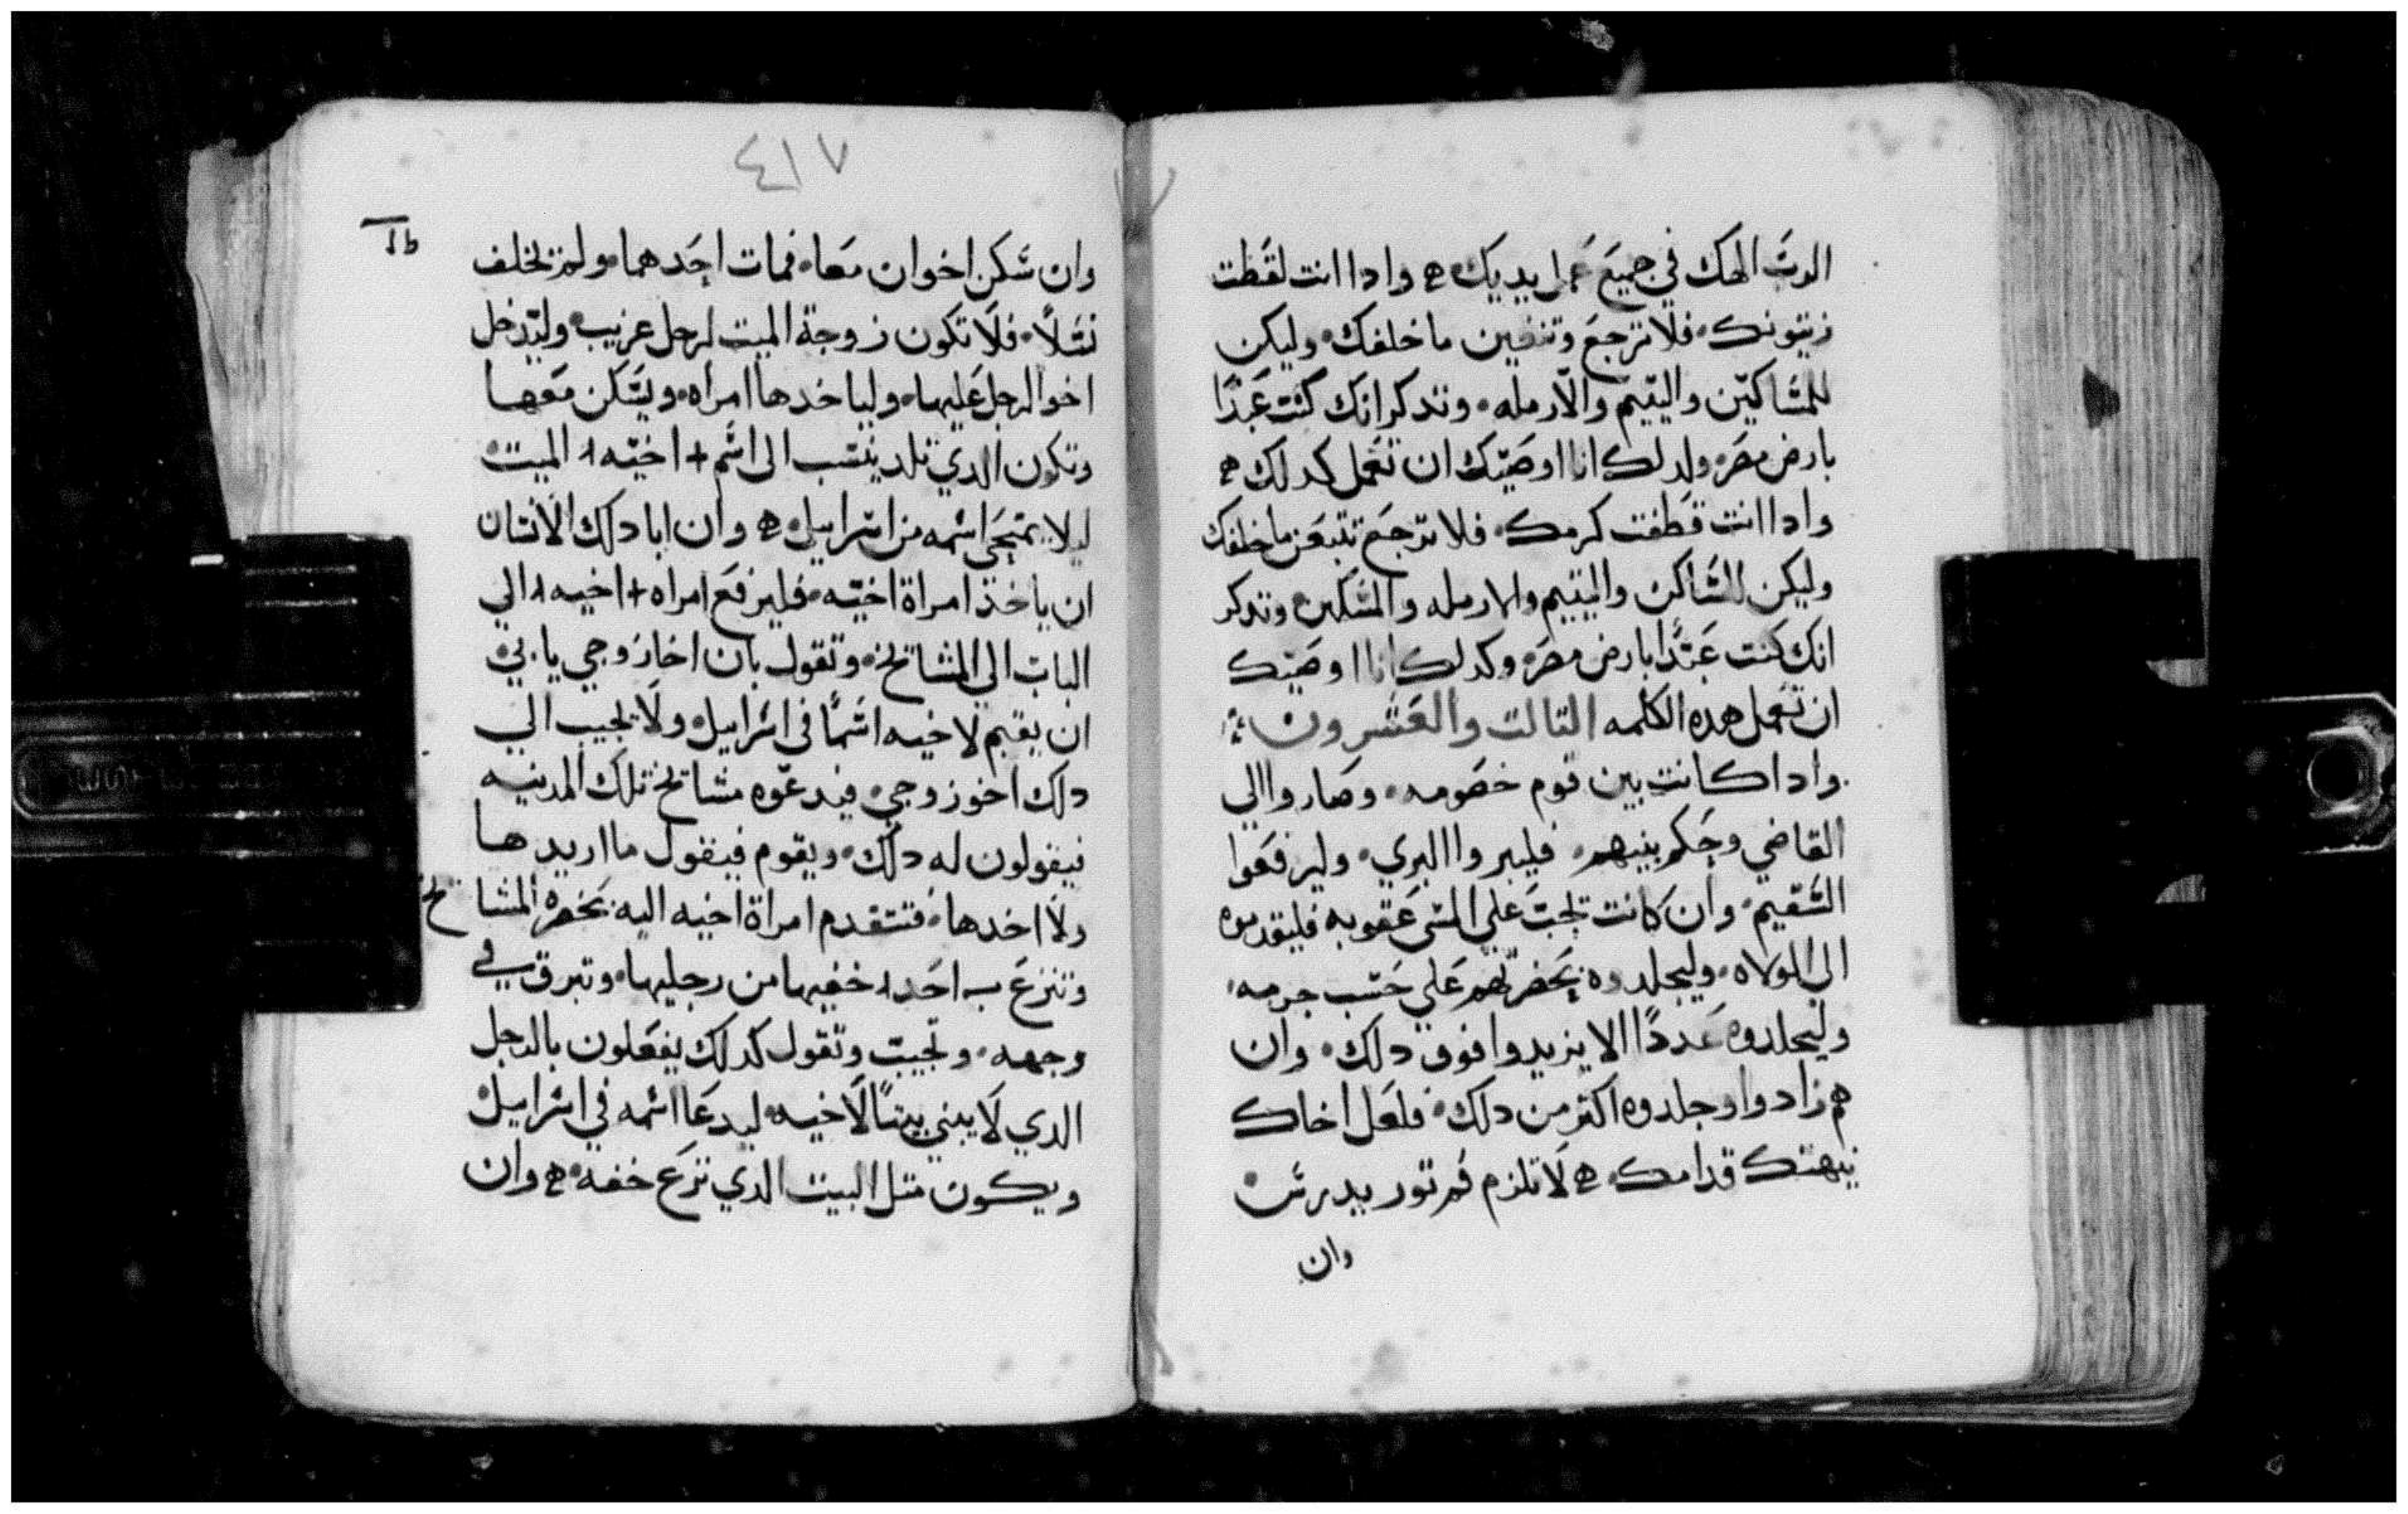 الرب الهك في جميع عمل يديك ه واذا انت لقطت
زيتونك فلا ترجع وتنفين ما خلفك وليكن
للمساكين واليتيم والارمله وتدكر انك كنت عبدًا
بارض مصر ولدلك انا اوصيتك ان تعمل كدلك ه
وادا انت قطفت كرمك فلا ترجع تتبعن ما خلفك
وليكن للساكن واليتيم والارمله والمسكين وتدكر
انك كنت عبدًا بارض مصر وكدلك انا اوصيتك
ان تعمل هده الكلمه التالت والعشرون
وادا كانت بين قوم خصومه وصاروا الي
القاضي وحكم بينهم فليبروا البري وليرفعوا
السقيم وان كانت تجب علي المسي عقوبه فليقدموه
الي الولاه وليجلدوه بحضرتهم علي حسب جرمه
وليجلدوه عددًا الا يزيدوا فوق دلك وان
هم زادوا وجلدوه اكتر من دلك فلعل اخاك
ينهتك قدامك ه لا تلزم فم تور يدرس
وان
٤١٧
وان سكن اخوان معا فمات احدهما ولم يخلف
نسلًا فلا تكون زوجة الميت لرجل غريب وليدخل
اخو الرجل عليها ولياخدها امراه ويسكن معها
وتكون الدي تلد ينسب الى اسم + اخيه ٨ الميت
ليلا يمتحي اسمه من اسراييل ه وان ابا دلك الانسان
ان ياخذ امراة اخيه فليرفع امراه + اخيه ٨ الي
الباب الي المشايخ وتقول بان اخا زوجي يابي
ان يقيم لاخيه اسمًا في اسراييل ولا يجيب الي
دلك اخو زوجي فيدعوه مشايخ تلك المدينه
فيقولون له دلك ويقوم فيقول ما اريدها
ولا اخدها فتتقدم امراة اخيه اليه بحضره المشايخ
وتنزع احد خفيها من رجليها وتبرق في
وجهه وتجيب وتقول كدلك يفعلون بالرجل
الدي لا يبني بيتًا لاخيه ليدعا اسمه في اسراييل
ويكون متل البيت الدي نزع خفه ه وان